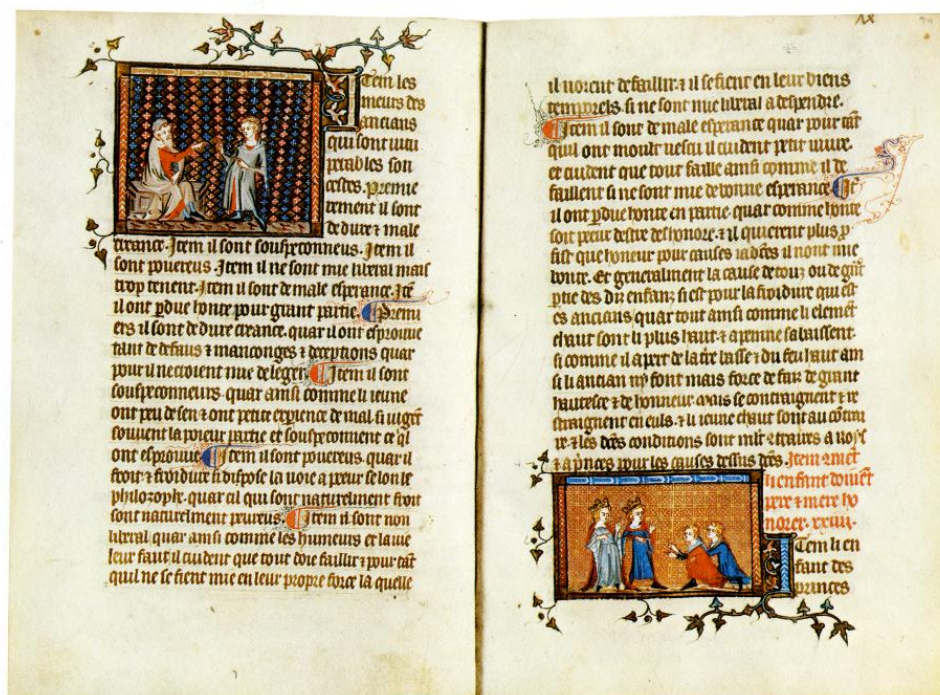 Item les
meurs des
ancians
qui sont vitu
perables son
cestes. Premie
rement il sont
de dure & male
creance. Item il sont souspeconneus. Item il
sont pouereus. Item il ne sont mie liberal mais
trop tenent. Item il sont de male esperance. Itē
il ont pdue honte pour grant partie. Premi
ers il sont de dure creance. quar il ont esprouue
tant de defaus & manconges & deceptions quar
pour il ne croient mie de leger. Item il sont
souspeconneurs. quar ainsi comme li ieune
ont peu de sen & ont petite expience de mal. si iugēt
souuent la poieur partie et souspeconnent ce q̄l
ont esprouue. Item il sont pouereus. quar il
froit & froidure si dispose la uoie a peeur selon le
philozophe. quar cil qui sont naturelment froit
sont naturelment peureus. Item il sont non
liberal quar ainsi comme les humeurs et la uie
leur faut il cuident que tout doie faillir & pour tāt
quil ne se fient mie en leur propre force la quelle
il uoient defaillir. & il se fient en leur biens
temporels. si ne sont mie liberal a despendre.
Item il sont de male esperance quar pour tāt
quil ont moult uescu il cuident petit uiure.
et cuident que tout faille ainsi comme il de
faillent si ne sont mie de bonne esperance. Itē
il ont pdue honte en partie. quar comme honte
soit peeur destre deshonore. & il quierent plus p
fist que honeur pour causes ia dc̄es il nont mie
honte. Et generalment la cause de touz ou de gn̄t
ptie des diz enfanz si est pour la froidure qui est
es ancians quar tout ainsi comme li elemēt
chaut sont li plus haut. & a penne sabaissent.
si comme il apert de la tr̄e basse & du feu haut ain
si li ancian np font mais force de fair̄ de grant
hautesce & de honneur mais se contraignent & re
straignent en euls. & li ieune chaut sont au cōtrai
re. & les dc̄es conditions sont
& a princes pour les causes dessus dc̄es. Item cōmēt
li enfant doiuēt
pere & mere ho
norer. xxiiii.
Item li en
fant des
princes